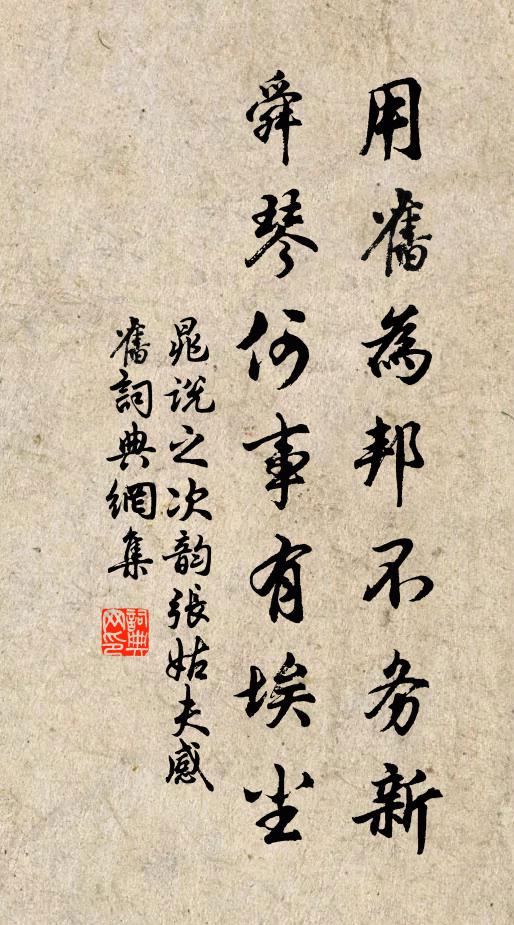 用舊為邦不务新
舜琴何事有埃尘
晁说之次韵張姑夫感
舊詞典網集
詞典
网印